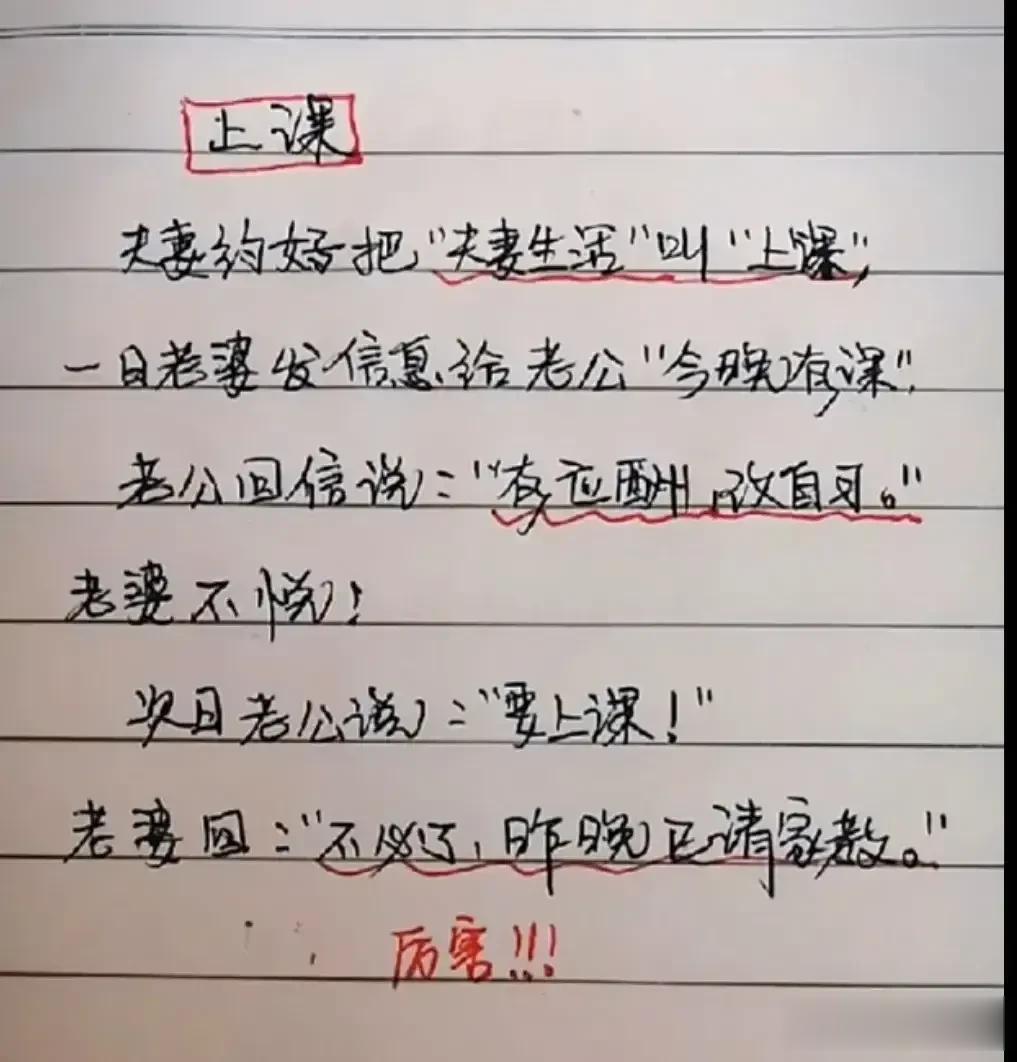 上课
夫妻约好把“夫妻生活”叫“上课”,
一日老婆发信息给老公“今晚有课”.
老公回信说:“有应酬,改自习。”
老婆不悦!
次日老公说:“要上课!”
老婆回:“不必了,昨晚已请家教。”
厉害!!!